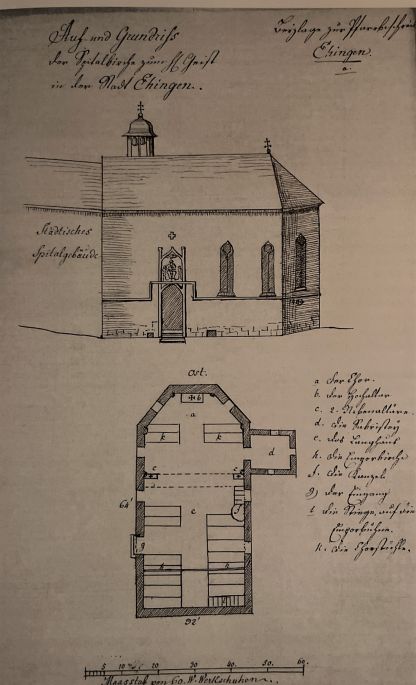 Auf und Grundriss
der Spitalkirche zum Hl. Geist
in der Stadt Ehingen.
Beylage zur Pfarrbeschrei
Ehingen.
a.
Städtisches
Spitalgebäude
Ost.
b
a
k
k
d
c
c
64'
e
f
g
h
h
32'
a der Chor.
b. der Hochaltar
c. 2. Nebenaltäre.
d. die Sakristey
e. das Langhaus
h. die Emporkirche
f. die Kanzel
g) der Eingang
i die Stiege auf die
Emporbühne.
k. die Chorstühle.
5 10 20 30 40. 50. 60.
Maasstab von 60. W. Werkschuhen.